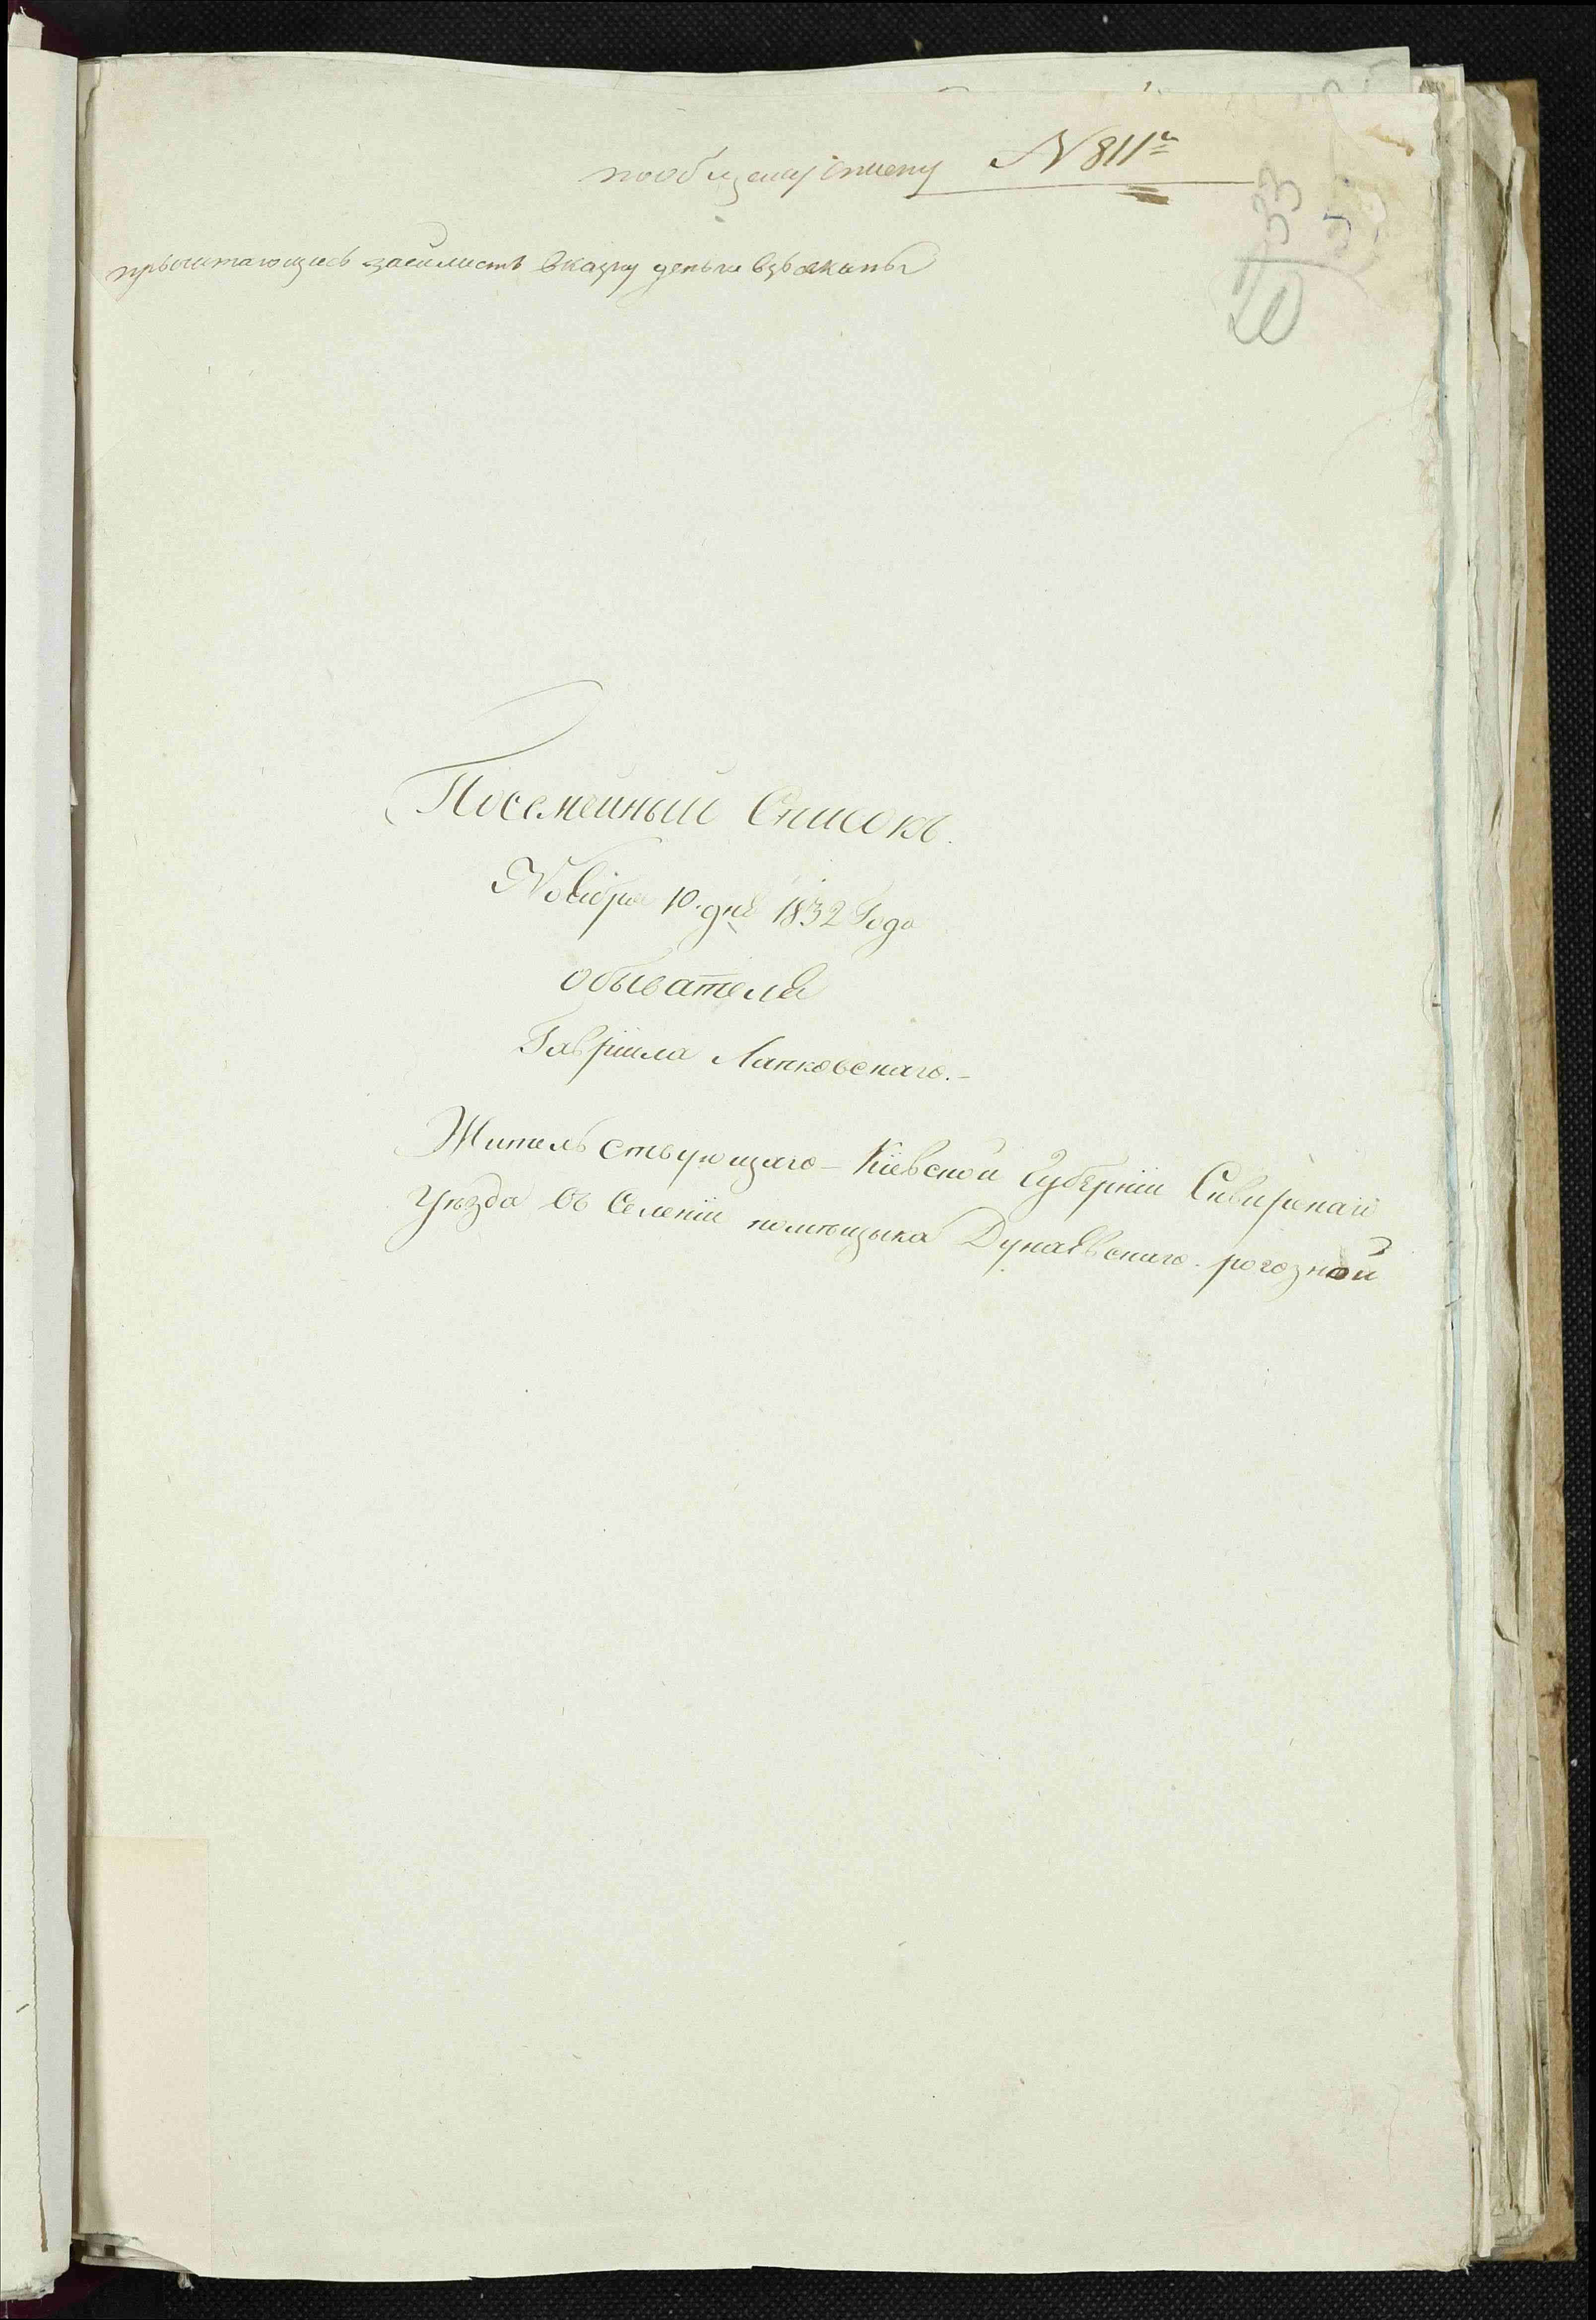 пообщему списку N 811й
причитающиесь засилистъ вказну деньги взысканы
33
Посемейный Списокъ.
Ноября 10. дня 1832 Года
обывателя
Гаврiила Лапковскаго.-
Жительствующаго- Кiевской Губернiи Сквирскаго
уѣзда въ Селенiи помѣщыка Дунаевскаго. рогозной